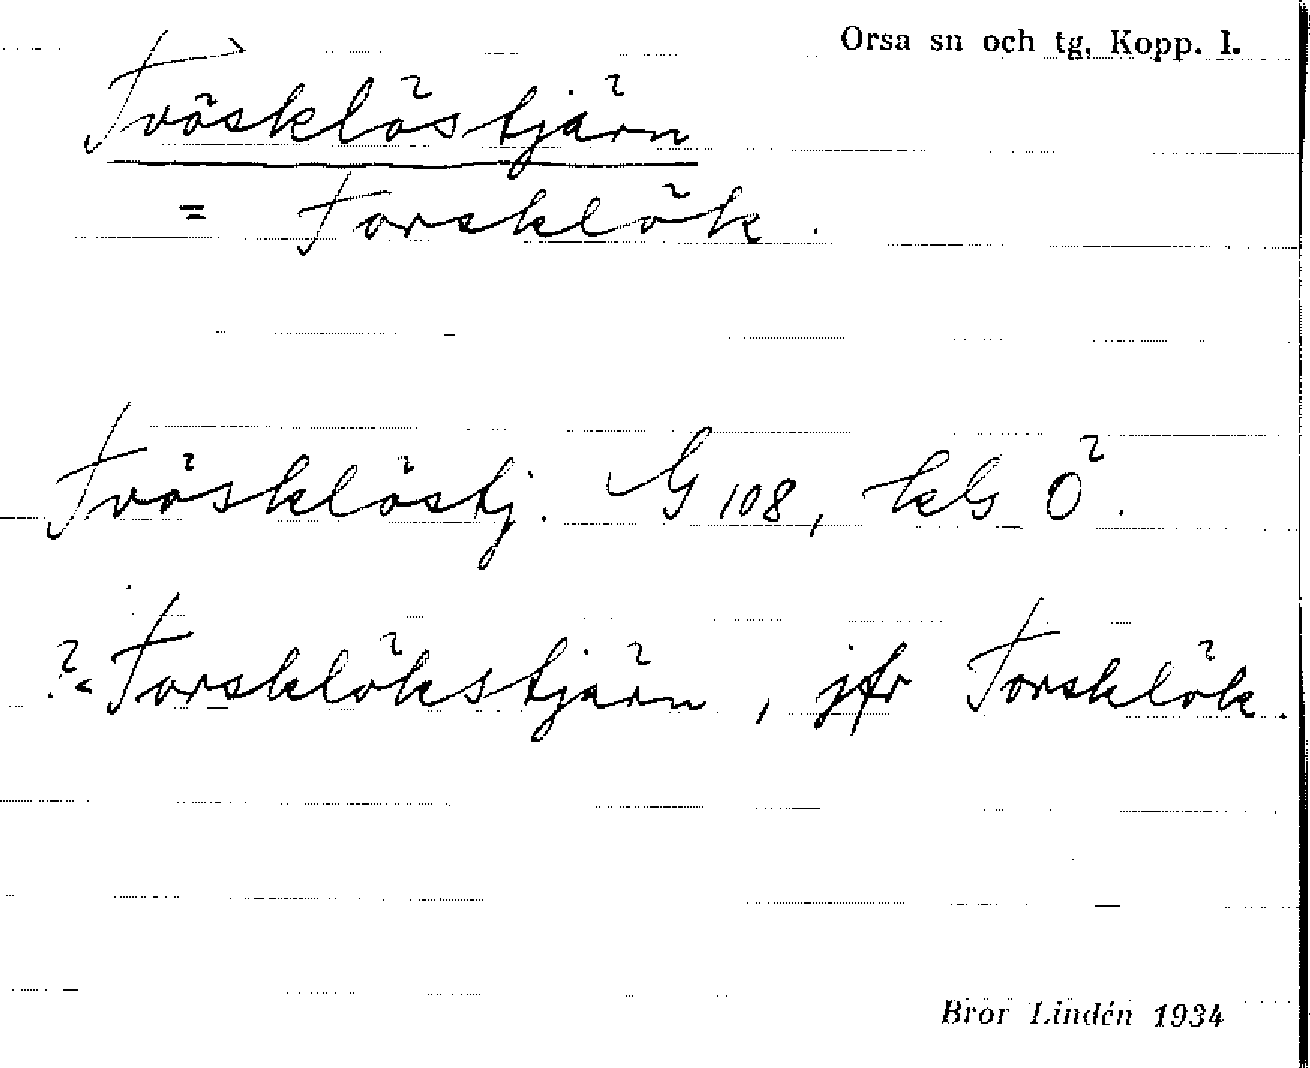 Orsa sn och tg, Kopp. l.
Tvösklöstjärn
= Torsklök.
Tvösklöstj. G 108, kG Ö.
?< Torsklökstjärn, jfr Torsklök.
Bror Lindén 1934